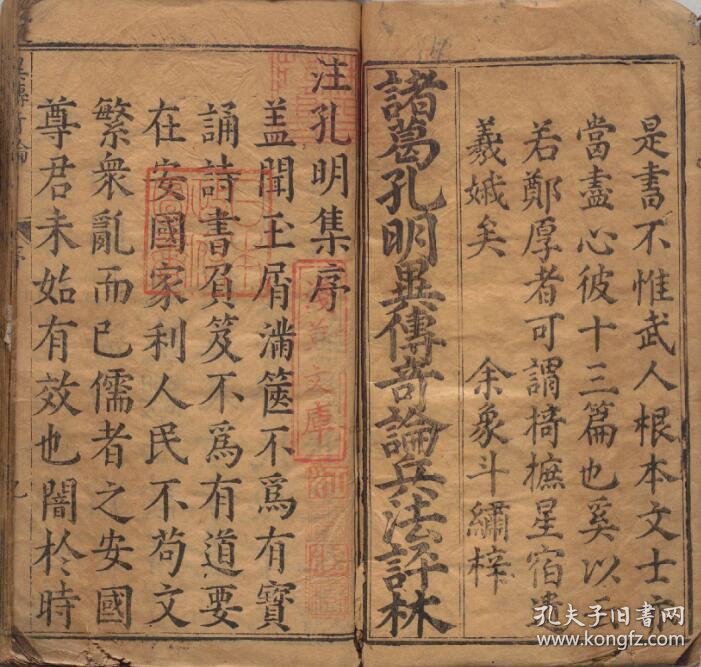 是書不惟武人根本文士亦
當盡心彼十三篇也奚以
若鄭厚者可謂掎摭星宿遺
羲娥矣 余象斗繡梓
諸葛孔明異傳奇論兵法評林
注孔明集序
盖聞玉屑滿篋不爲有寶
誦詩書負笈不爲有道要
在安國家利人民不苟文
繁衆亂而已儒者之安國
尊君未始有效也闇於時
文庫
孔夫子旧书网
www.kongfz.com